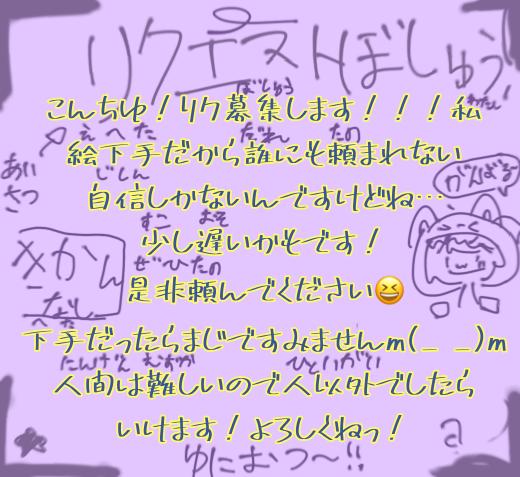 リクエストぼしゅう
ぼしゅう わたし！
こんちゆ！リク募集します！！！私
えへた だれ たの
絵下手だから誰にも頼まれない
あいさつ
じしん
自信しかないんですけどね…
がんばる
すこ おそ
少し遅いかもです！
きかん
なし
ぜひたの
是非頼んでください😆
へた
下手だったらまじですみませんm(_ _)m
にんげん むずか ひといがい
人間は難しいので人以外でしたら
いけます！よろしくねっ！
ゆにおつ〜!!